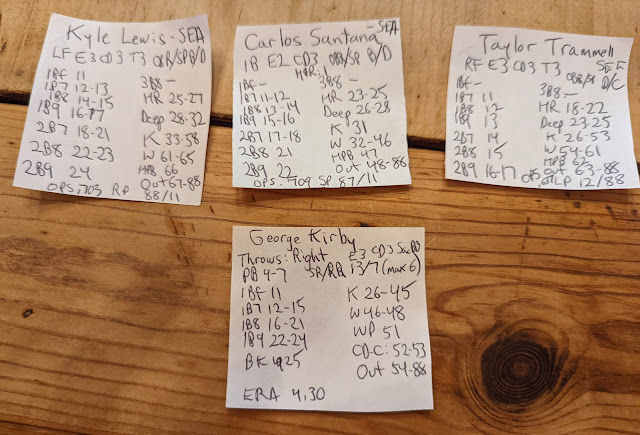 Kyle Lewis - SEA
LF E3 CD3 T3 OBR/SP B/D
1BF 11
1B7 12-13 3B8 -
1B8 14-15 HR 25-27
1B9 16-17 Deep 28-32
2B7 18-21 K 33-58
2B8 22-23 W 61-65
2B9 24 HPB 66
Out 67-88
OPS .703 RP 88/11
Carlos Santana - SEA
1B E2 CD3 OBR/SP B/D
1BF - 3B8 -
1B7 11-12 HR 23-25
1B8 13-14 Deep 26-28
1B9 15-16 K 31
2B7 17-18 W 32-46
2B8 21 HPB 47
2B9 22 Out 48-88
OPS .709 SP 87/11
Taylor Trammell
RF E3 CD3 T3 D/C
1BF - 3B8 -
1B7 11 HR 18-22
1B8 12 Deep 23-25
1B9 13 K 26-53
2B7 14 W 54-61
2B8 15 HPB 62
2B9 16-17 Out 63-88
OPS LP 12/88
George Kirby
Throws: Right E3 CD3 Sac BD
PB 4-7 SR/RR 13/7 (max 6)
1BF 11 K 26-45
1B7 12-15 W 46-48
1B8 16-21 WP 51
1B9 22-24 CD-C: 52-53
BK 25 Out 54-88
ERA 4.30